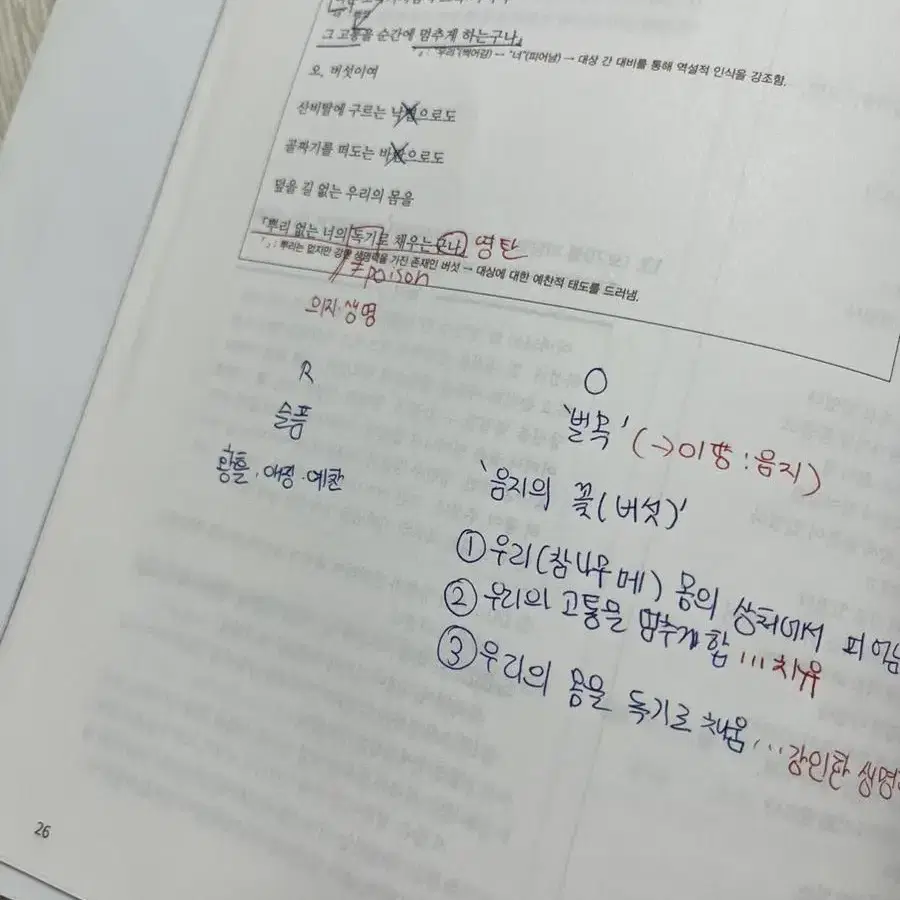 그 고통을 순간에 멈추게 하는구나』
『 』: "우리"(썩어감) ↔ "너"(피어남) → 대상 간 대비를 통해 역설적 인식을 강조함.
오, 버섯이여
산비탈에 구르는 낙엽으로도
골짜기를 떠도는 바람으로도
덮을 길 없는 우리의 몸을
『뿌리 없는 너의 독기로 채우는구나』 영탄
『 』: 뿌리는 없지만 강한 생명력을 가진 존재인 버섯 → 대상에 대한 예찬적 태도를 드러냄.
≠poison
의지·생명
R
슬픔
황홀·애정·예찬
O
'벌목' (→이향: 음지)
'음지의 꽃(버섯)'
① 우리(참나무 떼) 몸의 상처에서 피어남
② 우리의 고통을 멈추게 함 ... 치유
③ 우리의 몸을 독기로 채움 ... 강인한 생명
26